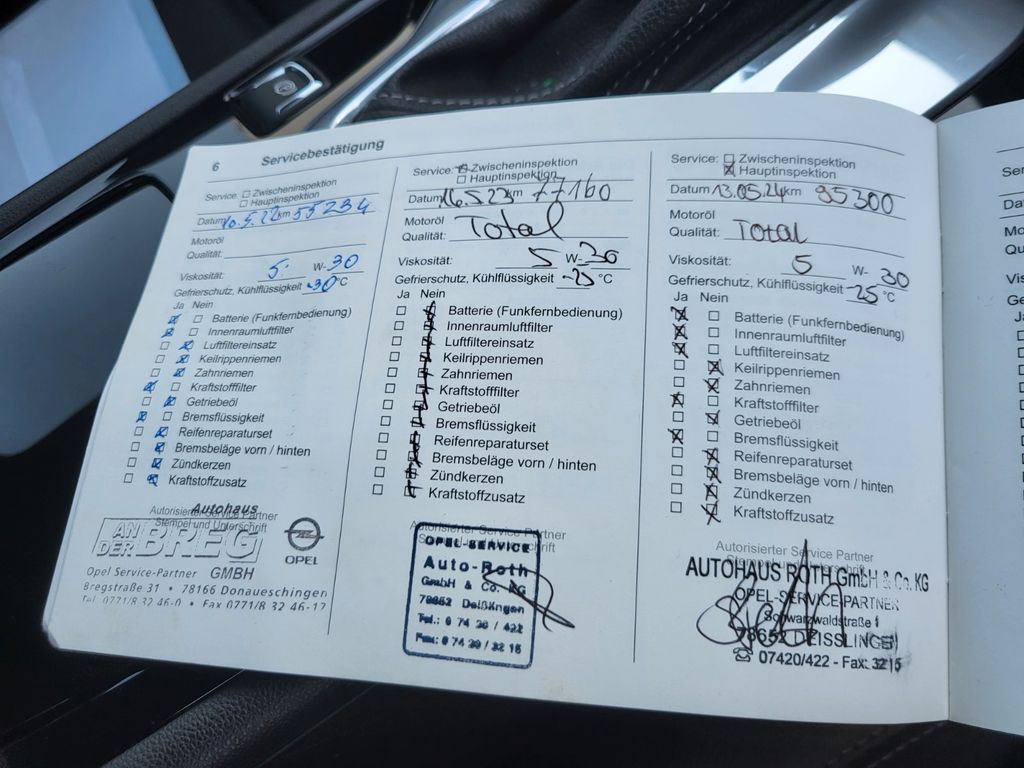 6 Servicebestätigung
Service: Zwischeninspektion
Hauptinspektion
Datum 10.5.22 km 55234
Motoröl
Qualität:
Viskosität: 5 W-30
Gefrierschutz, Kühlflüssigkeit -30 °C
Ja Nein
Batterie (Funkfernbedienung)
Innenraumluftfilter
Luftfiltereinsatz
Keilrippenriemen
Zahnriemen
Kraftstofffilter
Getriebeöl
Bremsflüssigkeit
Reifenreparaturset
Bremsbeläge vorn / hinten
Zündkerzen
Kraftstoffzusatz
Autorisierter Service Partner
Stempel und Unterschrift
Autohaus
AN DER BREG
OPEL
Opel Service-Partner GMBH
Bregstraße 31 • 78166 Donaueschingen
Tel. 0771/8 32 46-0 • Fax 0771/8 32 46-17
Service: Zwischeninspektion
Hauptinspektion
Datum 16.5.23 km 77160
Motoröl
Qualität: Total
Viskosität: 5 W-30
Gefrierschutz, Kühlflüssigkeit -25 °C
Ja Nein
Batterie (Funkfernbedienung)
Innenraumluftfilter
Luftfiltereinsatz
Keilrippenriemen
Zahnriemen
Kraftstofffilter
Getriebeöl
Bremsflüssigkeit
Reifenreparaturset
Bremsbeläge vorn / hinten
Zündkerzen
Kraftstoffzusatz
Autorisierter Service Partner
OPEL-SERVICE
Auto-Roth
GmbH & Co. KG
78652 Deißlingen
Tel.: 0 74 20 / 422
Fax: 0 74 20 / 32 15
Service: Zwischeninspektion
Hauptinspektion
Datum 13.05.24 km 95300
Motoröl
Qualität: Total
Viskosität: 5 W-30
Gefrierschutz, Kühlflüssigkeit -25 °C
Ja Nein
Batterie (Funkfernbedienung)
Innenraumluftfilter
Luftfiltereinsatz
Keilrippenriemen
Zahnriemen
Kraftstofffilter
Getriebeöl
Bremsflüssigkeit
Reifenreparaturset
Bremsbeläge vorn / hinten
Zündkerzen
Kraftstoffzusatz
Autorisierter Service Partner
AUTOHAUS ROTH GmbH & Co. KG
OPEL-SERVICE-PARTNER
Schwarzwaldstraße 1
78652 DEISSLINGEN
☎ 07420/422 - Fax: 3215